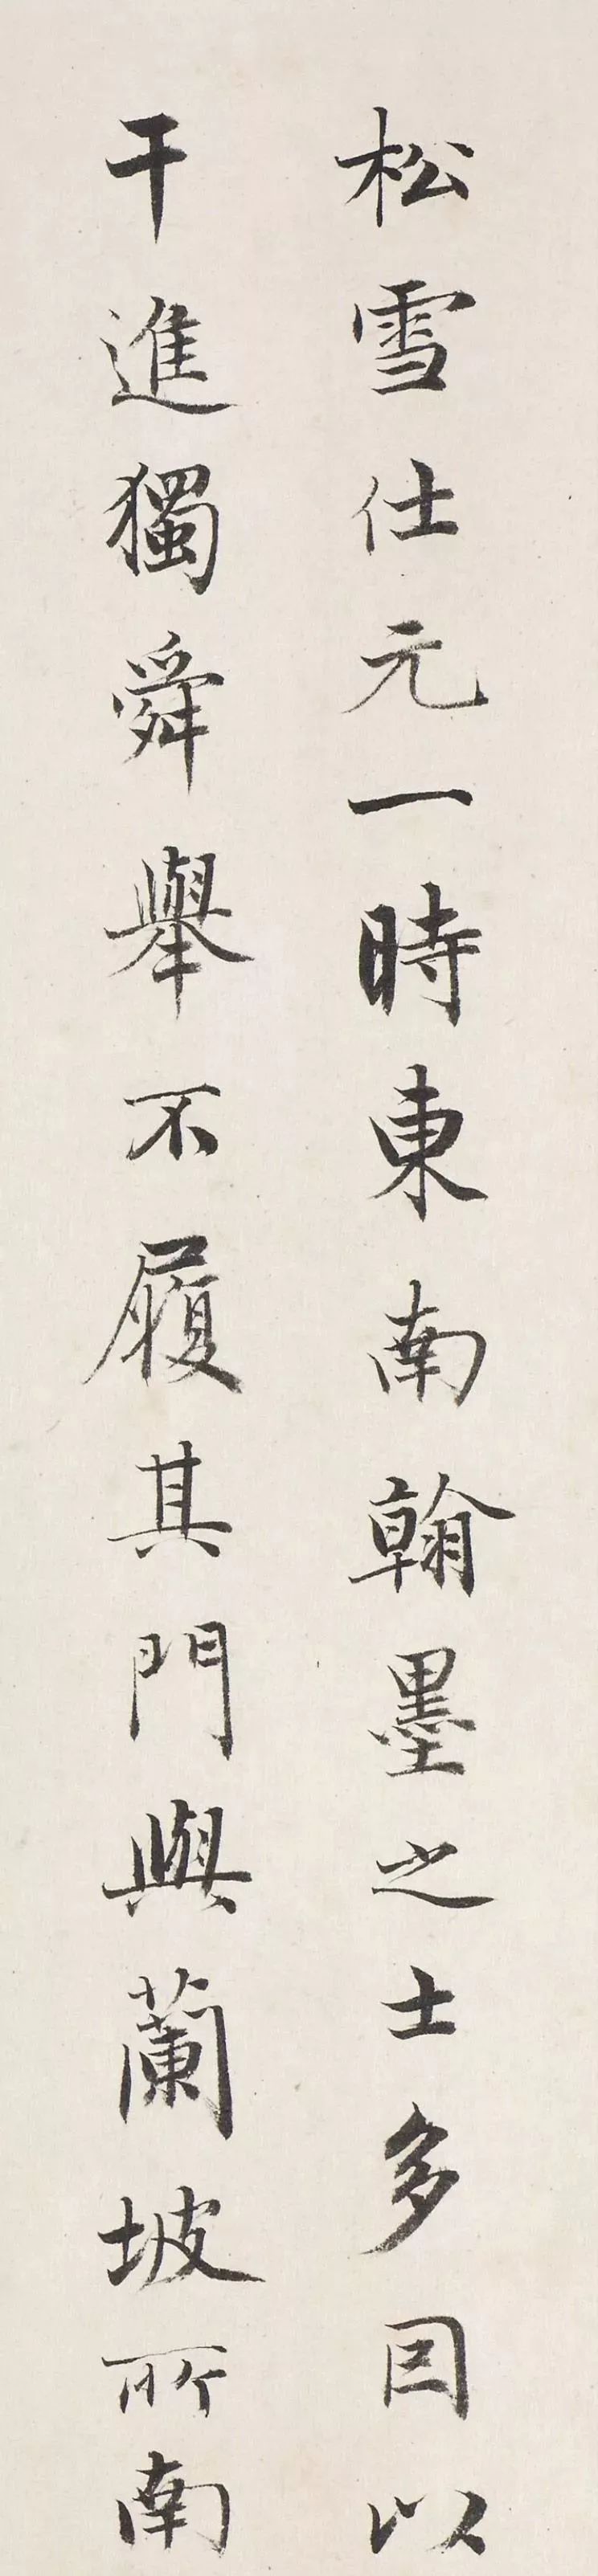 松雪仕元一時東南翰墨之士多因以
干進獨舜舉不履其門與蘭坡所南